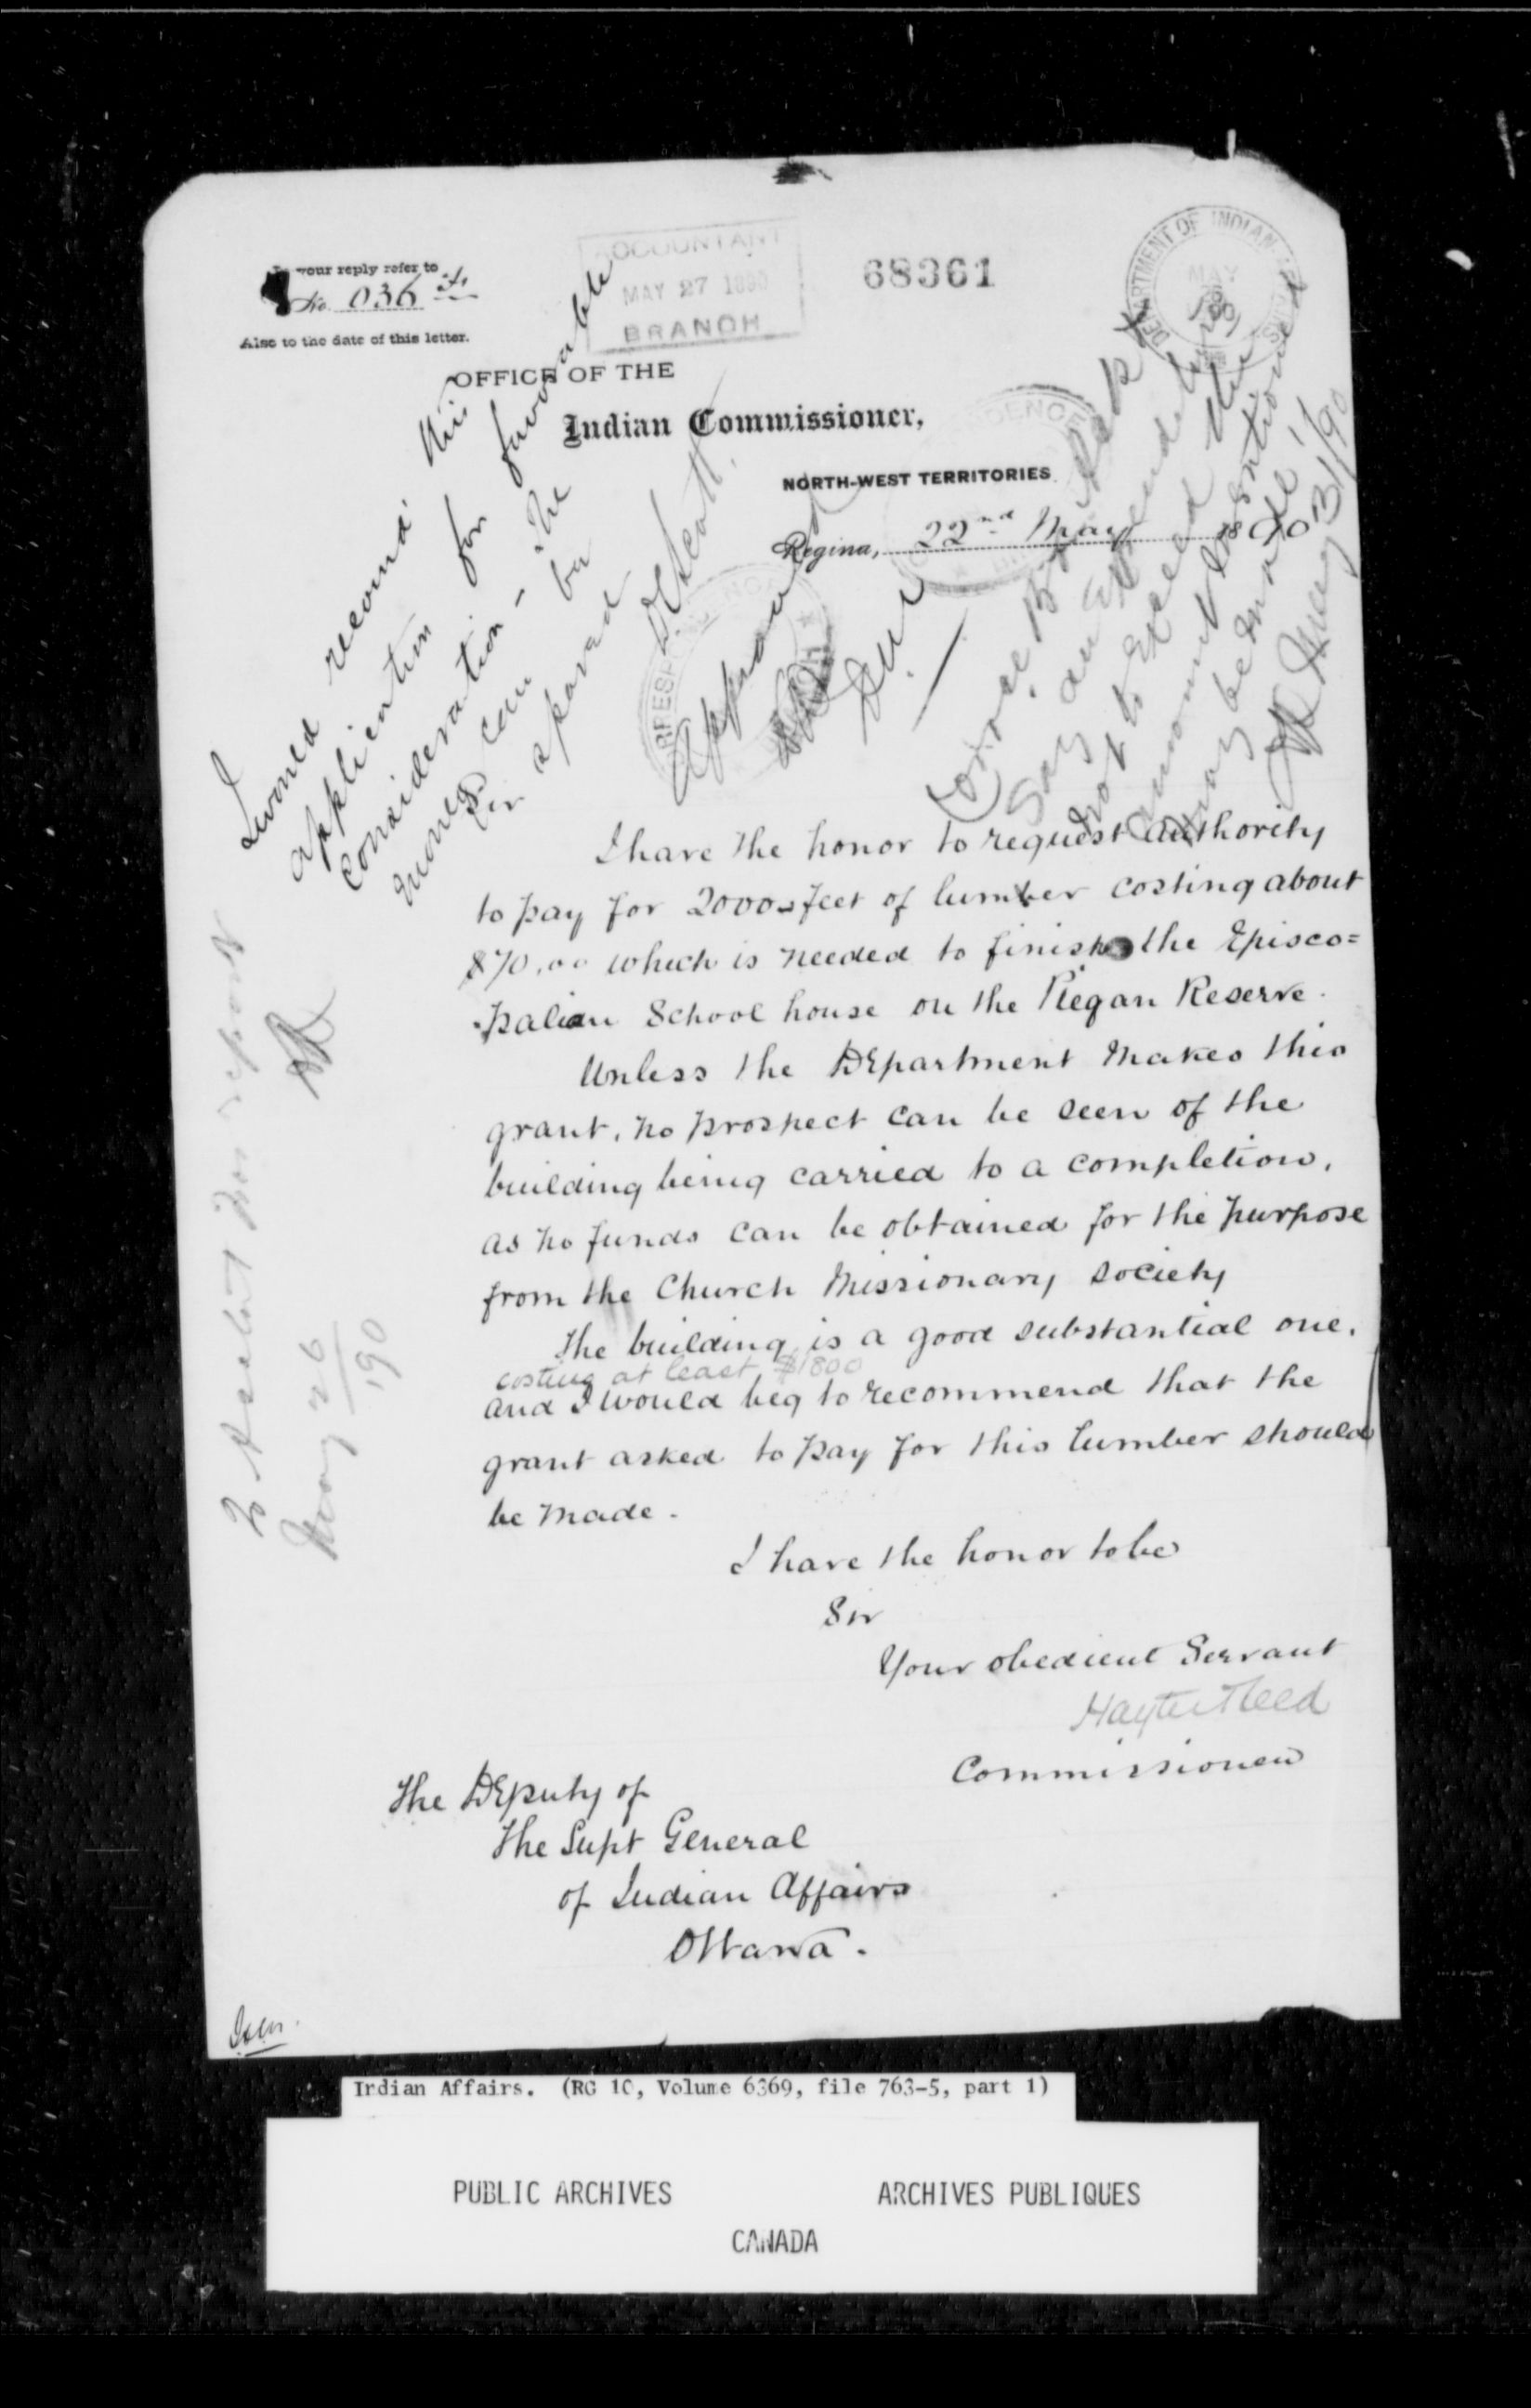 your reply refer to
No. 036
Also to the date of this letter.
ACCOUNTANT
MAY 27 1890
BRANCH
68361
DEPARTMENT OF INDIAN AFFAIRS
MAY
OFFICE OF THE
Indian Commissioner,
NORTH-WEST TERRITORIES
Regina, 22nd May 1890
I would recomd. this
application for favourable
consideration - the
money can be
spared
D C Scott
Approved
Sir
say an expenditure
not to exceed the
amount mentioned
may be made!
May 31/90
To Asslt for report
May 26
/90
I have the honor to request authority
to pay for 2000 feet of lumber costing about
$70.00 which is needed to finish the Episco=
palian School house on the Piegan Reserve.
Unless the Department makes this
grant, no prospect can be seen of the
building being carried to a completion,
as no funds can be obtained for the purpose
from the Church Missionary Society
The building is a good substantial one,
costing at least $1800
and I would beg to recommend that the
grant asked to pay for this lumber should
be made.
I have the honor to be
Sir
Your obedient Servant
Hayter Reed
Commissioner
The Deputy of
the Supt General
of Indian Affairs
Ottawa.
Indian Affairs. (RG 10, Volume 6369, file 763-5, part 1)
PUBLIC ARCHIVES ARCHIVES PUBLIQUES
CANADA